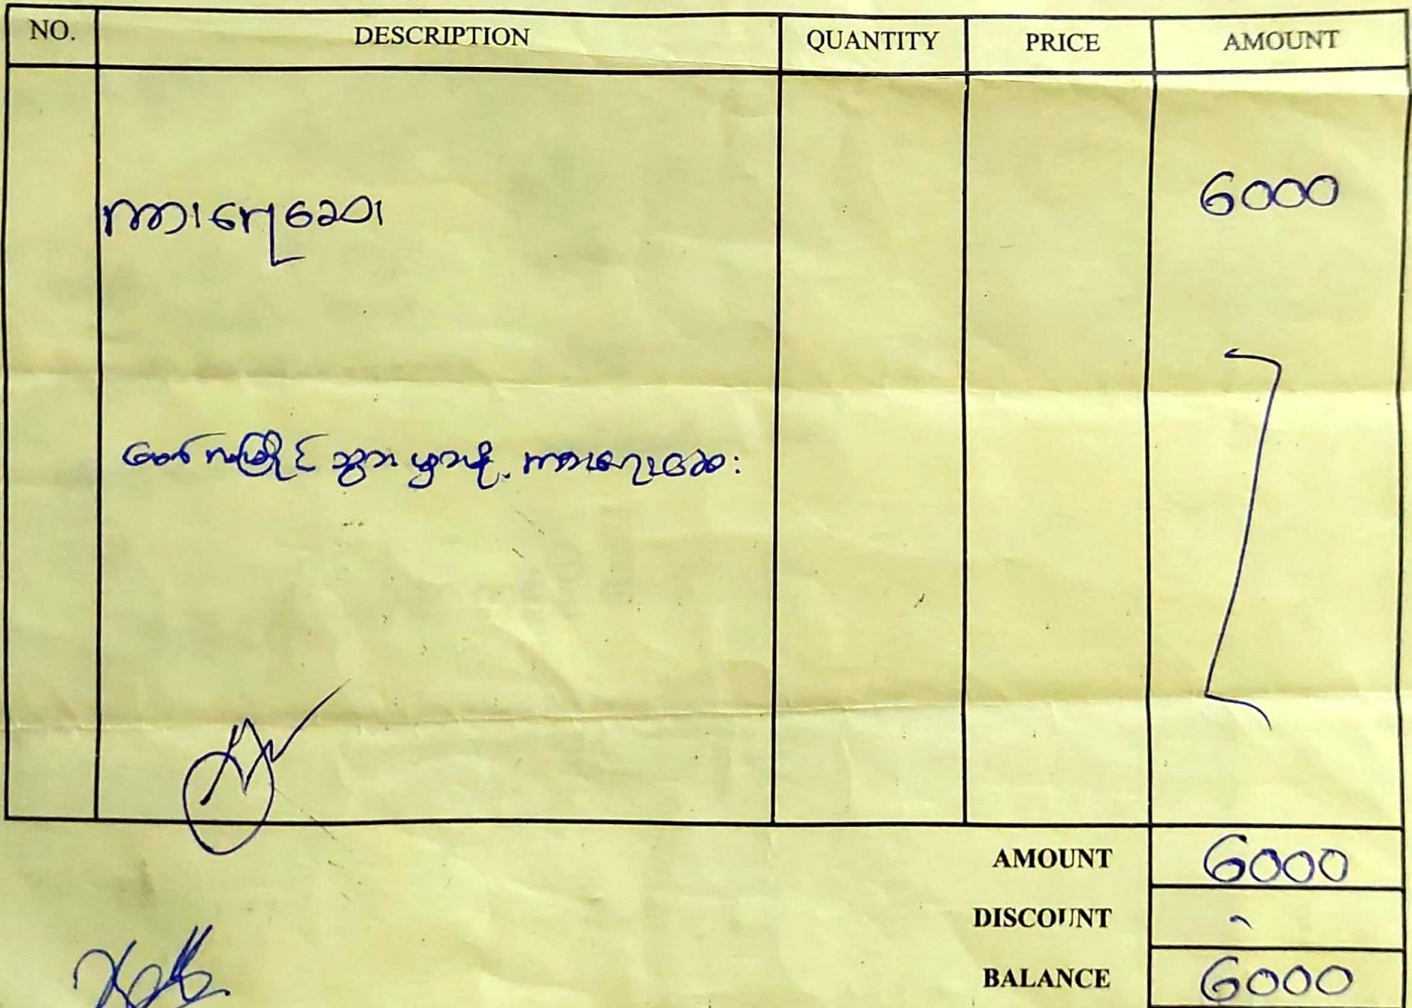 NO. DESCRIPTION QUANTITY PRICE AMOUNT
ကားရေဆေး 6000
ကားရေဆေး
AMOUNT 6000
DISCOUNT -
BALANCE 6000